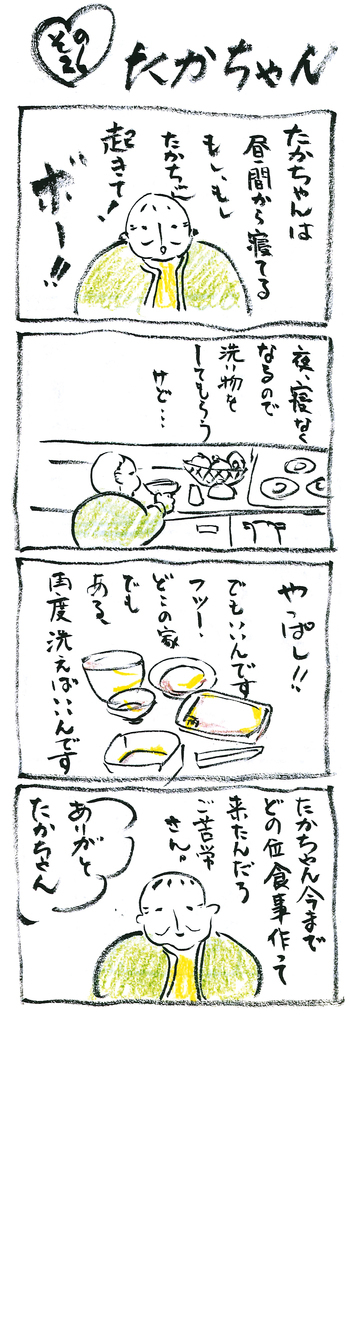 のろ
そろ
たかちゃん
たかちゃんは
昼間から寝てる
もしもし
たかちゃん
起きて!
ボー!!
夜、寝なく
なるので
洗い物を
してもらう
けど…
やっぱし!!
でもいいんです
フツー、
どこの家
でも
ある、
再度洗えばいいんです
たかちゃん今まで
どの位食事作って
来たんだろ
ご苦労
さん。
ありがと
たかちゃん